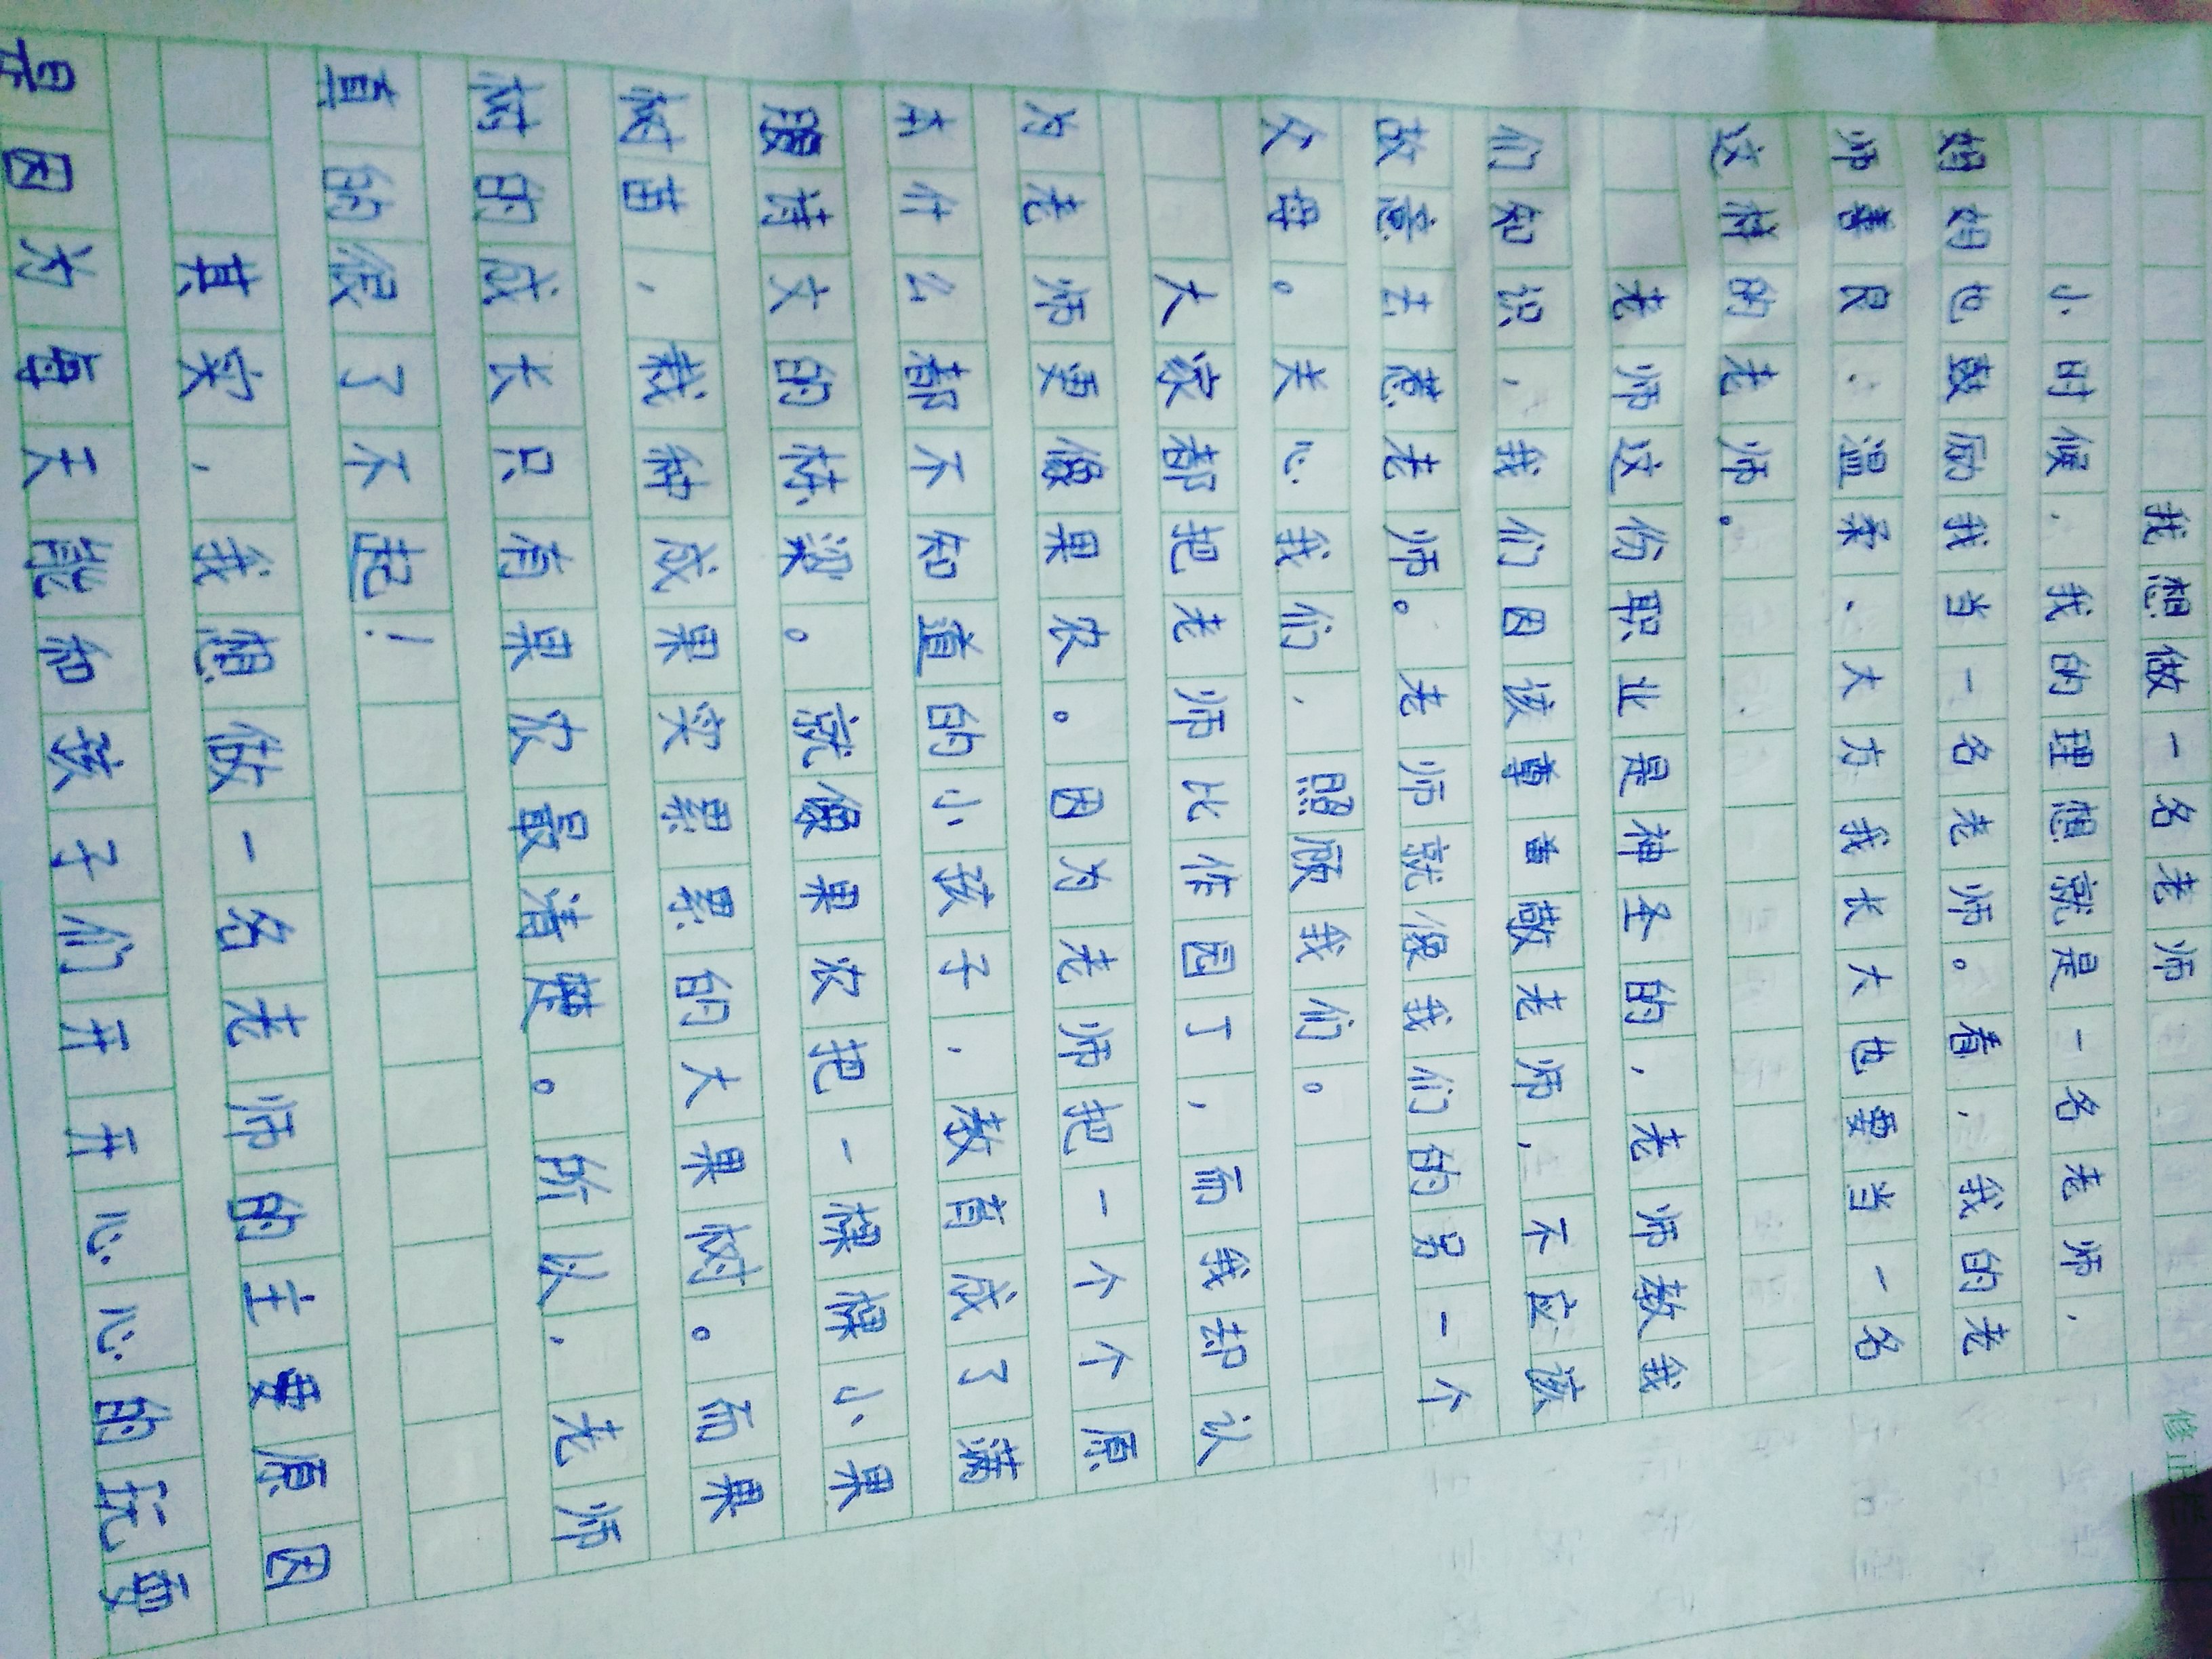 我想做一名老师
小时候，我的理想就是一名老师，
妈妈也鼓励我当一名老师。看，我的老
师善良、温柔、大方我长大也要当一名
这样的老师。
老师这份职业是神圣的，老师教我
们知识，我们因该尊敬老师，不应该
故意去惹老师。老师就像我们的另一个
父母。关心我们，照顾我们。
大家都把老师比作园丁，而我却认
为老师更像果农。因为老师把一个个原
本什么都不知道的小孩子，教育成了满
腹诗文的栋梁。就像果农把一棵棵小果
树苗，栽种成果实累累的大果树。而果
树的成长只有果农最清楚。所以，老师
真的很了不起！
其实，我想做一名老师的主要原因
是因为每天能和孩子们开开心心的玩耍
修正栏